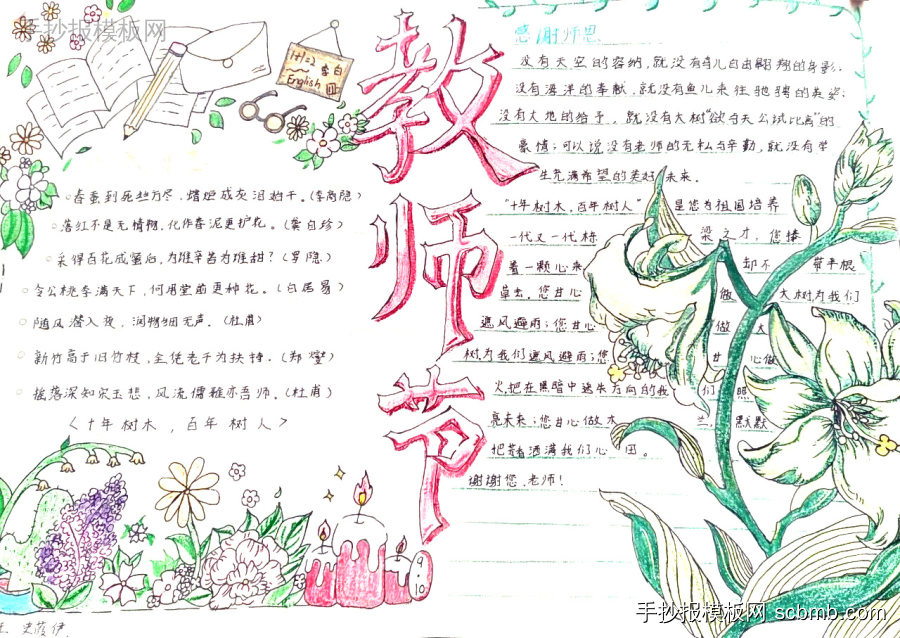 手抄报模板网
1+1=2
李白
English
教师节
春蚕到死丝方尽,蜡炬成灰泪始干。(李商隐)
落红不是无情物,化作春泥更护花。(龚自珍)
采得百花成蜜后,为谁辛苦为谁甜?(罗隐)
令公桃李满天下,何用堂前更种花。(白居易)
随风潜入夜,润物细无声.(杜甫)
新竹高于旧竹枝,全凭老干为扶持.(郑燮)
摇落深知宋玉悲,风流儒雅亦吾师.(杜甫)
<十年树木,百年树人>
感谢师恩
没有天空的容纳,就没有鸟儿自由翱翔的身影.
没有海洋的奉献,就没有鱼儿来往驰骋的英姿;
没有大地的给予,就没有大树"欲与天公试比高"的
豪情;可以说没有老师的无私与辛勤,就没有学
生充满希望的美好未来.
"十年树木,百年树人" 是您为祖国培养
一代又一代栋 梁之才,您捧
着一颗心来 却不带半根
草去,您甘心 做大树为我们
遮风避雨;您甘心 做大
树为我们遮风避雨;您 甘心做
火把在黑暗中迷失方向的我们照
亮未来;您甘心做 默默
把 洒满我们心田。
谢谢您,老师!
9
10
手抄报模板网 scbmb.com